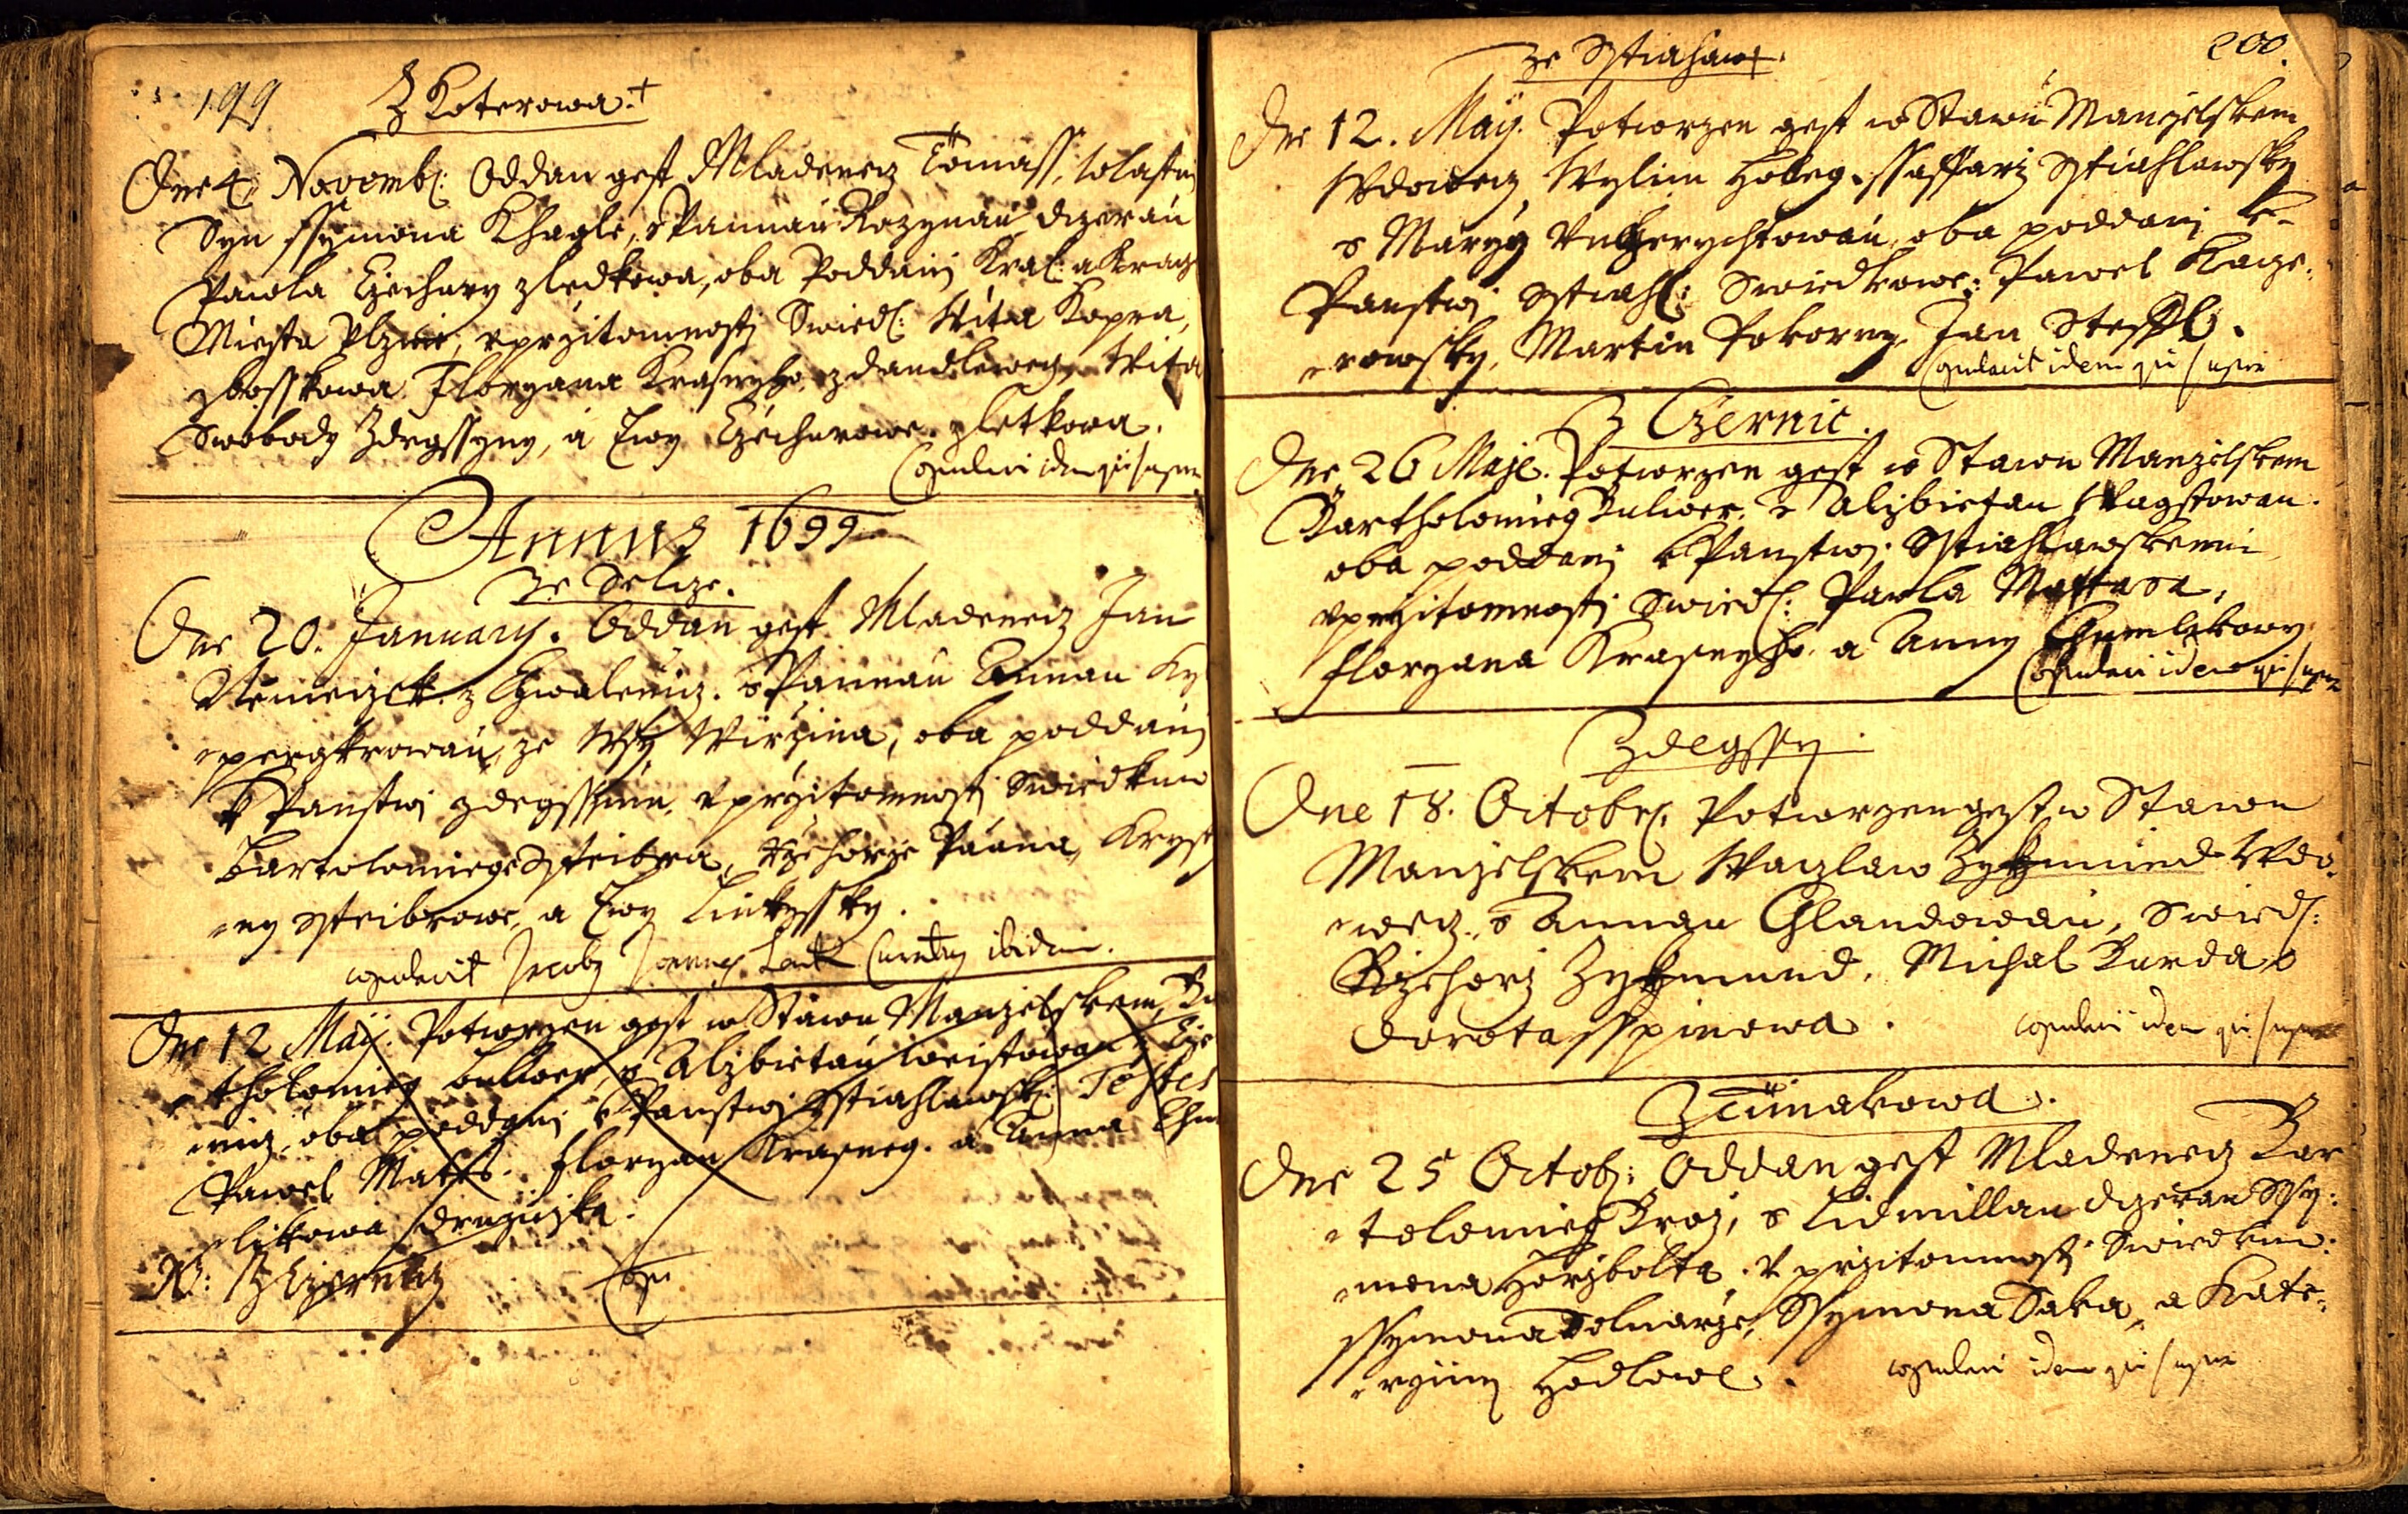 199 Z Koterowa. +
Dne 4. Novemb: Oddan gest Mladenecz Tomass, wlastni
Syn Ssymona Khagle, s Pannau Rozynau dczerau
Pawla Czechury z Ledkowa, oba Poddani Kral: a Krag
Miesta Plznie, v przitomnosti Swied: Wita Kopra,
z Bosskowa Floryana Krasnyho, z Daudlewecz, Wita
Swobody Zdegssyny, a Ewy Czechurowe z Letkowa.
Copulavi idem qui supra
Annus 1699
Ze Selcze.
Dne 20. January. Oddan gest Mladenecz Jan
Nemeczek z Chwalenicz. s Pannau Annau Ky
pergkrowau, ze Wsy Wirzina, oba poddani
k Panstwi Zdegssimu, v przitomnosti Swiedkuw
Bartolomiege Steibra, Rzehorze Pauna, Kryst
yny Steibrowe, a Ewy Linkyssky.
copulavit Jacobg Joannes Curatus ibidem.
Dne 12 Maÿ. Potworzen gest w Stawu Manzelskem, Ba
rtholomieg Bulwer, s Alzbietau Weistowau z Cze
rnicz, oba poddani k Panstwi Sstiahlawsk: Testes
Pawel Mattas. Floryan Krasneg. a Anna Chm
likowa Druziczka.
NB: Z Czernicz Cop
200.
Ze Sstiahlaw.
Dne 12. Maÿ. Potworzen gest w Stawu Manzelskem
Wdowecz, Wylim Hobeg, Ssaffarz Sstiahlawsky
s Maryg oba poddani k
Panstwi Sstiahl: Swiedkowe: Pawel Kacze
rowsky, Martin Pokorny, Jan Steffl.
Copulavit idem qui supra
Z Czernic.
Dne 26 Maje. Potworzen gest w Stawu Manzelskem
Bartholomieg Bulwer, s Alzbietau Wagstowau.
oba poddani k Panstwi Sstiahlawskemu
v przitomnosti Swied: Pawla Mattasa,
Floryana Krasnyho. a Anny Chumlikowy
Copulavi idem qui supra
Zdegssy.
Dne 18. Octobr: Potworzen gest w Stawu
Manzelskem Waczlaw Zykmund Wdo
wecz. s Annau Chlandowau, Swied:
Rzehorz Zykmund, Michal Burda
Dorota Sspinowa. copulavi idem qui supra
Z Timakowa.
Dne 25 Octob: Oddan gest Mladenecz Bar
tolomieg Broz, s Lidmillau dczerau Ssy:
mona Horzbolta. v przitomnosti Swiedkuw:
Ssymona Tolnarze, Ssymona Saka, a Kate:
rziny Hodlowe. copulavi idem qui supra